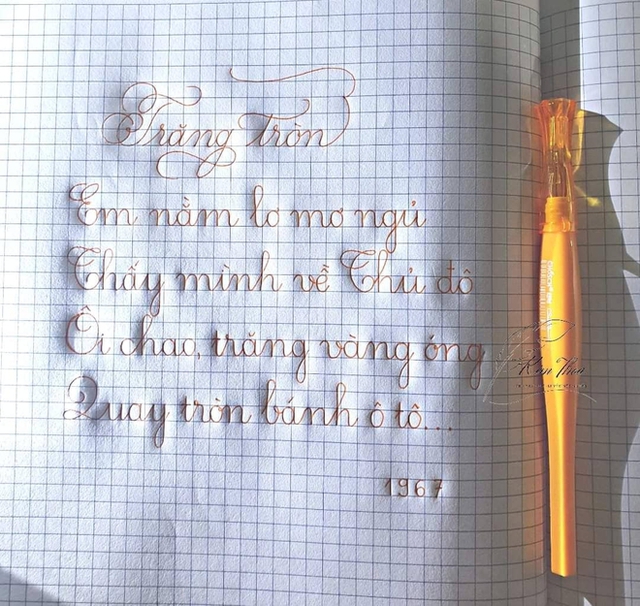 Trăng tròn
Em nằm lơ mơ ngủ
Thấy mình về Thủ đô
Ôi chao, trăng vàng óng
Quay tròn bánh ô tô...
1967
Kim Thoa